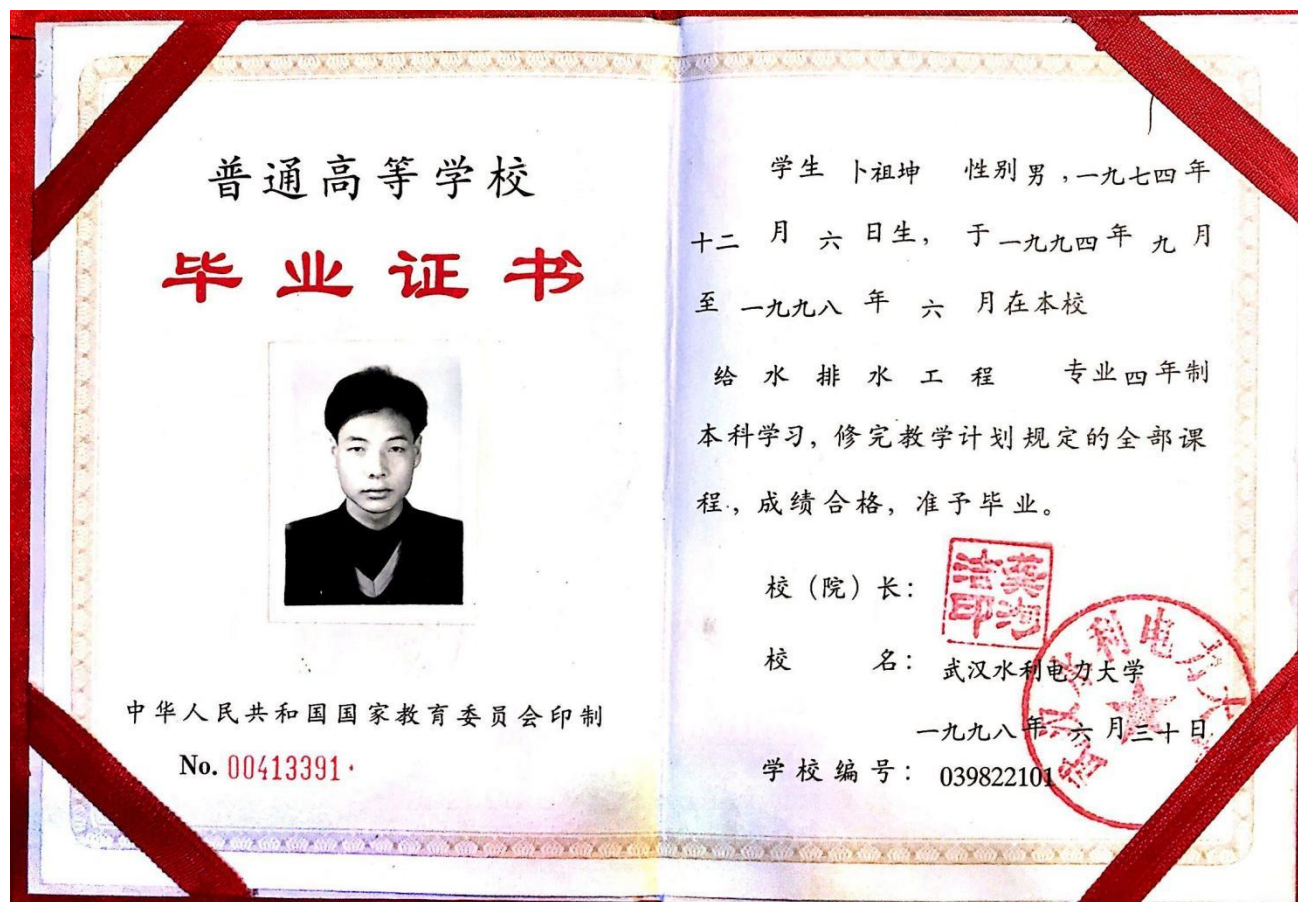 普通高等学校
毕业证书
中华人民共和国国家教育委员会印制
No. 00413391
学生 卜祖坤 性别 男 ,一九七四 年
十二 月 六 日生, 于 一九九四 年 九 月
至 一九九八 年 六 月在本校
给水排水工程 专业 四 年制
本科学习, 修完教学计划规定的全部课
程, 成绩合格, 准予毕业。
校(院)长:
校 名: 武汉水利电力大学
一九九八 年 六 月 三十 日
学校编号: 039822101
武汉水利电力大学